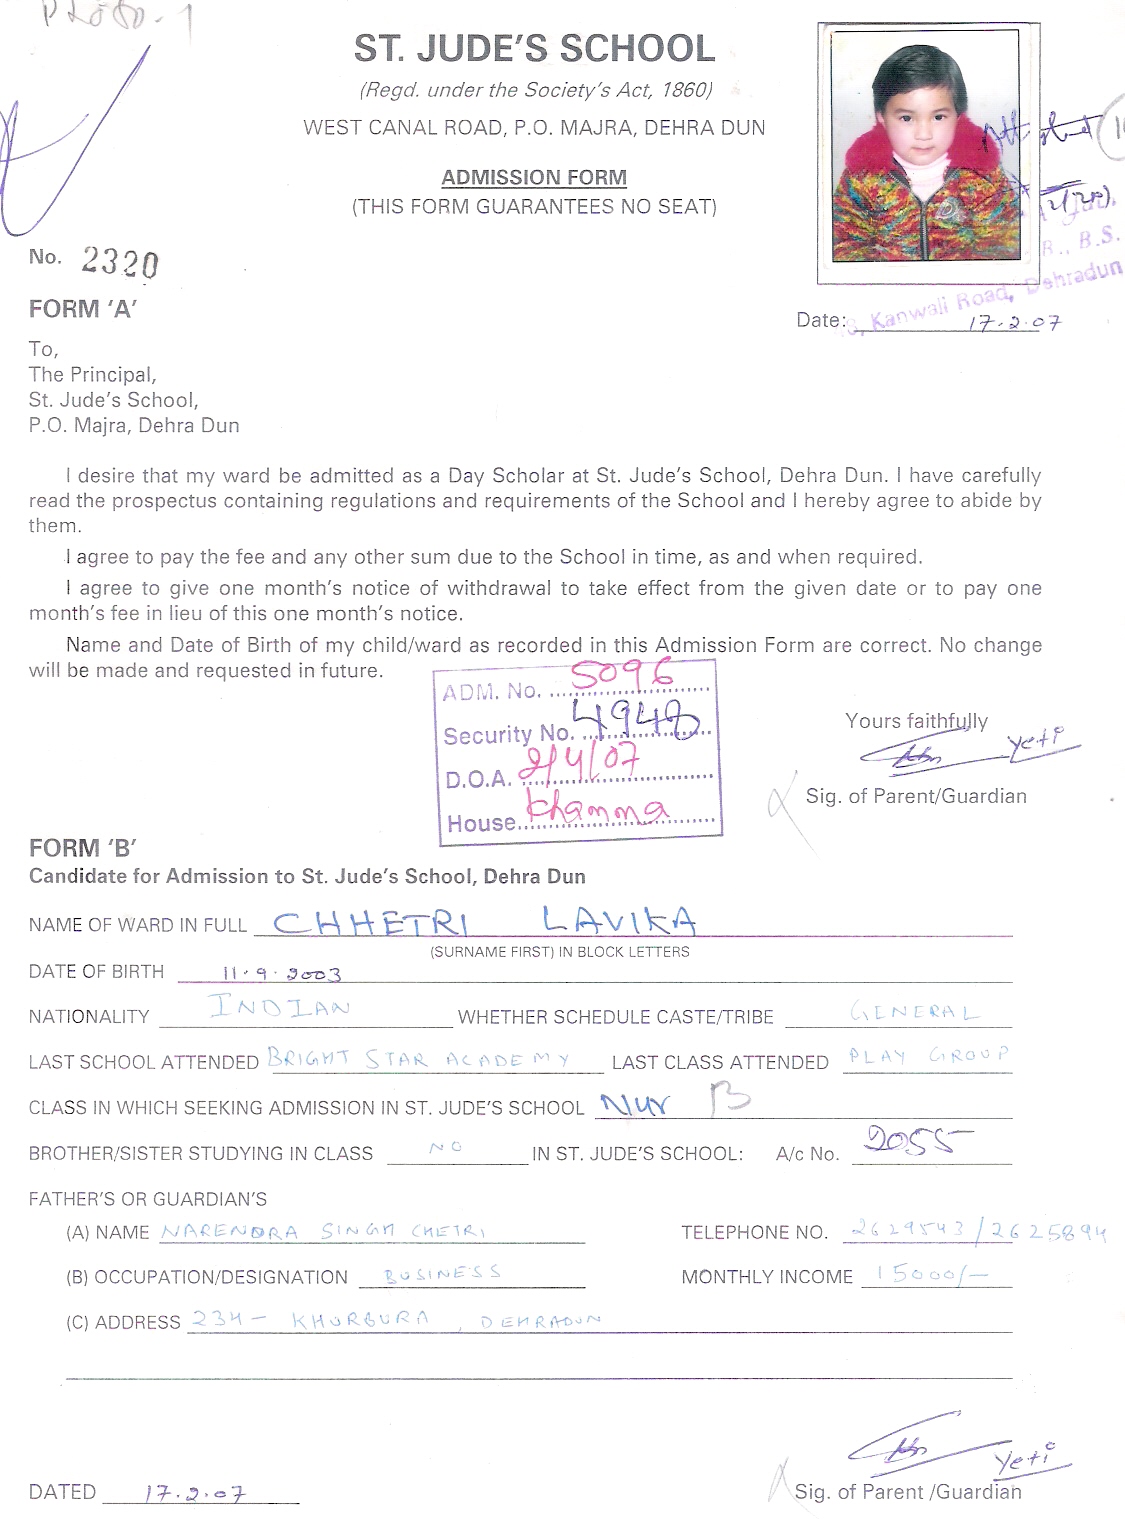 ST. JUDE'S SCHOOL
(Regd. under the Society's Act, 1860)
WEST CANAL ROAD, P.O. MAJRA, DEHRA DUN
ADMISSION FORM
(THIS FORM GUARANTEES NO SEAT)
No. 2320
B.S.
Kanwali Road, Dehradun
FORM 'A'
Date: 17.2.07
To,
The Principal,
St. Jude's School,
P.O. Majra, Dehra Dun
I desire that my ward be admitted as a Day Scholar at St. Jude's School, Dehra Dun. I have carefully
read the prospectus containing regulations and requirements of the School and I hereby agree to abide by
them.
I agree to pay the fee and any other sum due to the School in time, as and when required.
I agree to give one month's notice of withdrawal to take effect from the given date or to pay one
month's fee in lieu of this one month's notice.
Name and Date of Birth of my child/ward as recorded in this Admission Form are correct. No change
will be made and requested in future.
ADM. No. 5096
Security No. 4948
D.O.A. 2/4/07
House Khamma
Yours faithfully
yeti
Sig. of Parent/Guardian
FORM 'B'
Candidate for Admission to St. Jude's School, Dehra Dun
NAME OF WARD IN FULL CHHETRI LAVIKA
(SURNAME FIRST) IN BLOCK LETTERS
DATE OF BIRTH 11.9.2003
NATIONALITY INDIAN WHETHER SCHEDULE CASTE/TRIBE GENERAL
LAST SCHOOL ATTENDED BRIGHT STAR ACADEMY LAST CLASS ATTENDED PLAY GROUP
CLASS IN WHICH SEEKING ADMISSION IN ST. JUDE'S SCHOOL Nur B
BROTHER/SISTER STUDYING IN CLASS NO IN ST. JUDE'S SCHOOL: A/c No. 2055
FATHER'S OR GUARDIAN'S
(A) NAME NARENDRA SINGH CHETRI TELEPHONE NO. 2629543/2625894
(B) OCCUPATION/DESIGNATION BUSINESS MONTHLY INCOME 15000/-
(C) ADDRESS 234 - KHURBURA, DEHRADUN
yeti
DATED 17.2.07 Sig. of Parent /Guardian